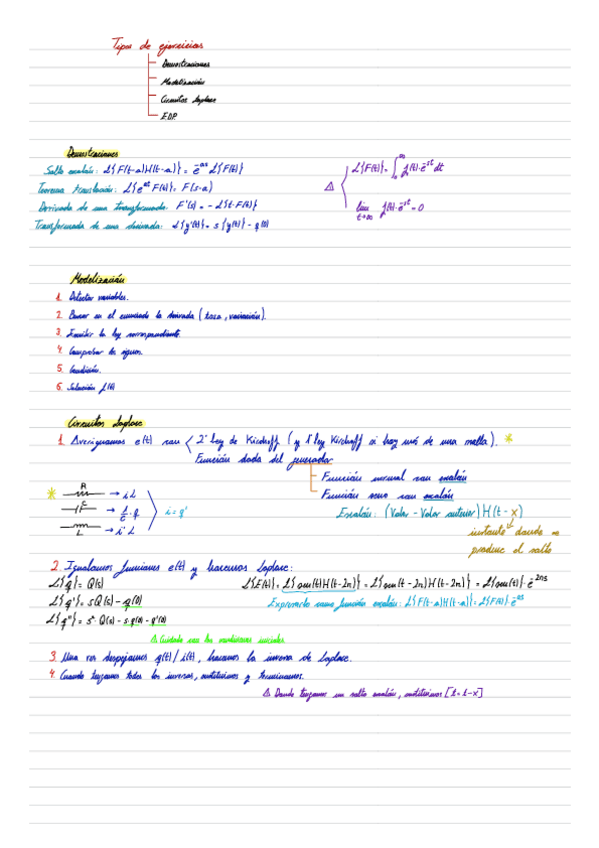 Tipos de ejercicios
Demostraciones
Modelización
Circuitos Laplace
E.D.P.
Demostraciones
Salto escalón: L{F(t-a)H(t-a)} = e^-as L{F(t)}
Teorema translación: L{e^at F(t)} = F(s-a)
Derivada de una transformada: F'(s) = - L{t·F(t)}
Transformada de una derivada: L{y'(t)} = s{y(t)} - y(0)
Δ
L{F(t)} = ∫₀^∞ f(t)·e^-st dt
lim t→∞ f(t)·e^-st = 0
Modelización
1. Detectar variables.
2. Buscar en el enunciado la derivada (tasa, variación).
3. Escribir la ley correspondiente.
4. Comprobar los signos.
5. Condición.
6. Solución f(t)
Circuitos Laplace
1. Averiguamos e(t) con < 2ª ley de Kirchoff (y 1ª ley Kirchoff si hay más de una malla). *
Función dada del generador
Función normal con escalón
Función seno con escalón
Escalón: (Valor - Valor anterior) H(t - x)
instante donde se
produce el salto
* R → i·R
C → 1/C · q
L → i'·L
i = q'
2. Igualamos funciones e(t) y hacemos Laplace:
L{q} = Q(s)
L{q'} = sQ(s) - q(0)
L{q''} = s²·Q(s) - s·q(0) - q'(0)
L{E(t)} = L{sen(t)H(t-2π)} = L{sen(t-2π)H(t-2π)} = L{sen(t)}·e^-2πs
Expresado como función escalón: L{F(t-a)H(t-a)} = L{F(t)}·e^-as
Δ Cuidado con las condiciones iniciales
3. Una vez despejamos q(t)/i(t), hacemos la inversa de Laplace.
4. Cuando tengamos todas las inversas, sustituimos y terminamos.
Δ Donde tengamos un salto escalón, sustituimos [t = t-x]